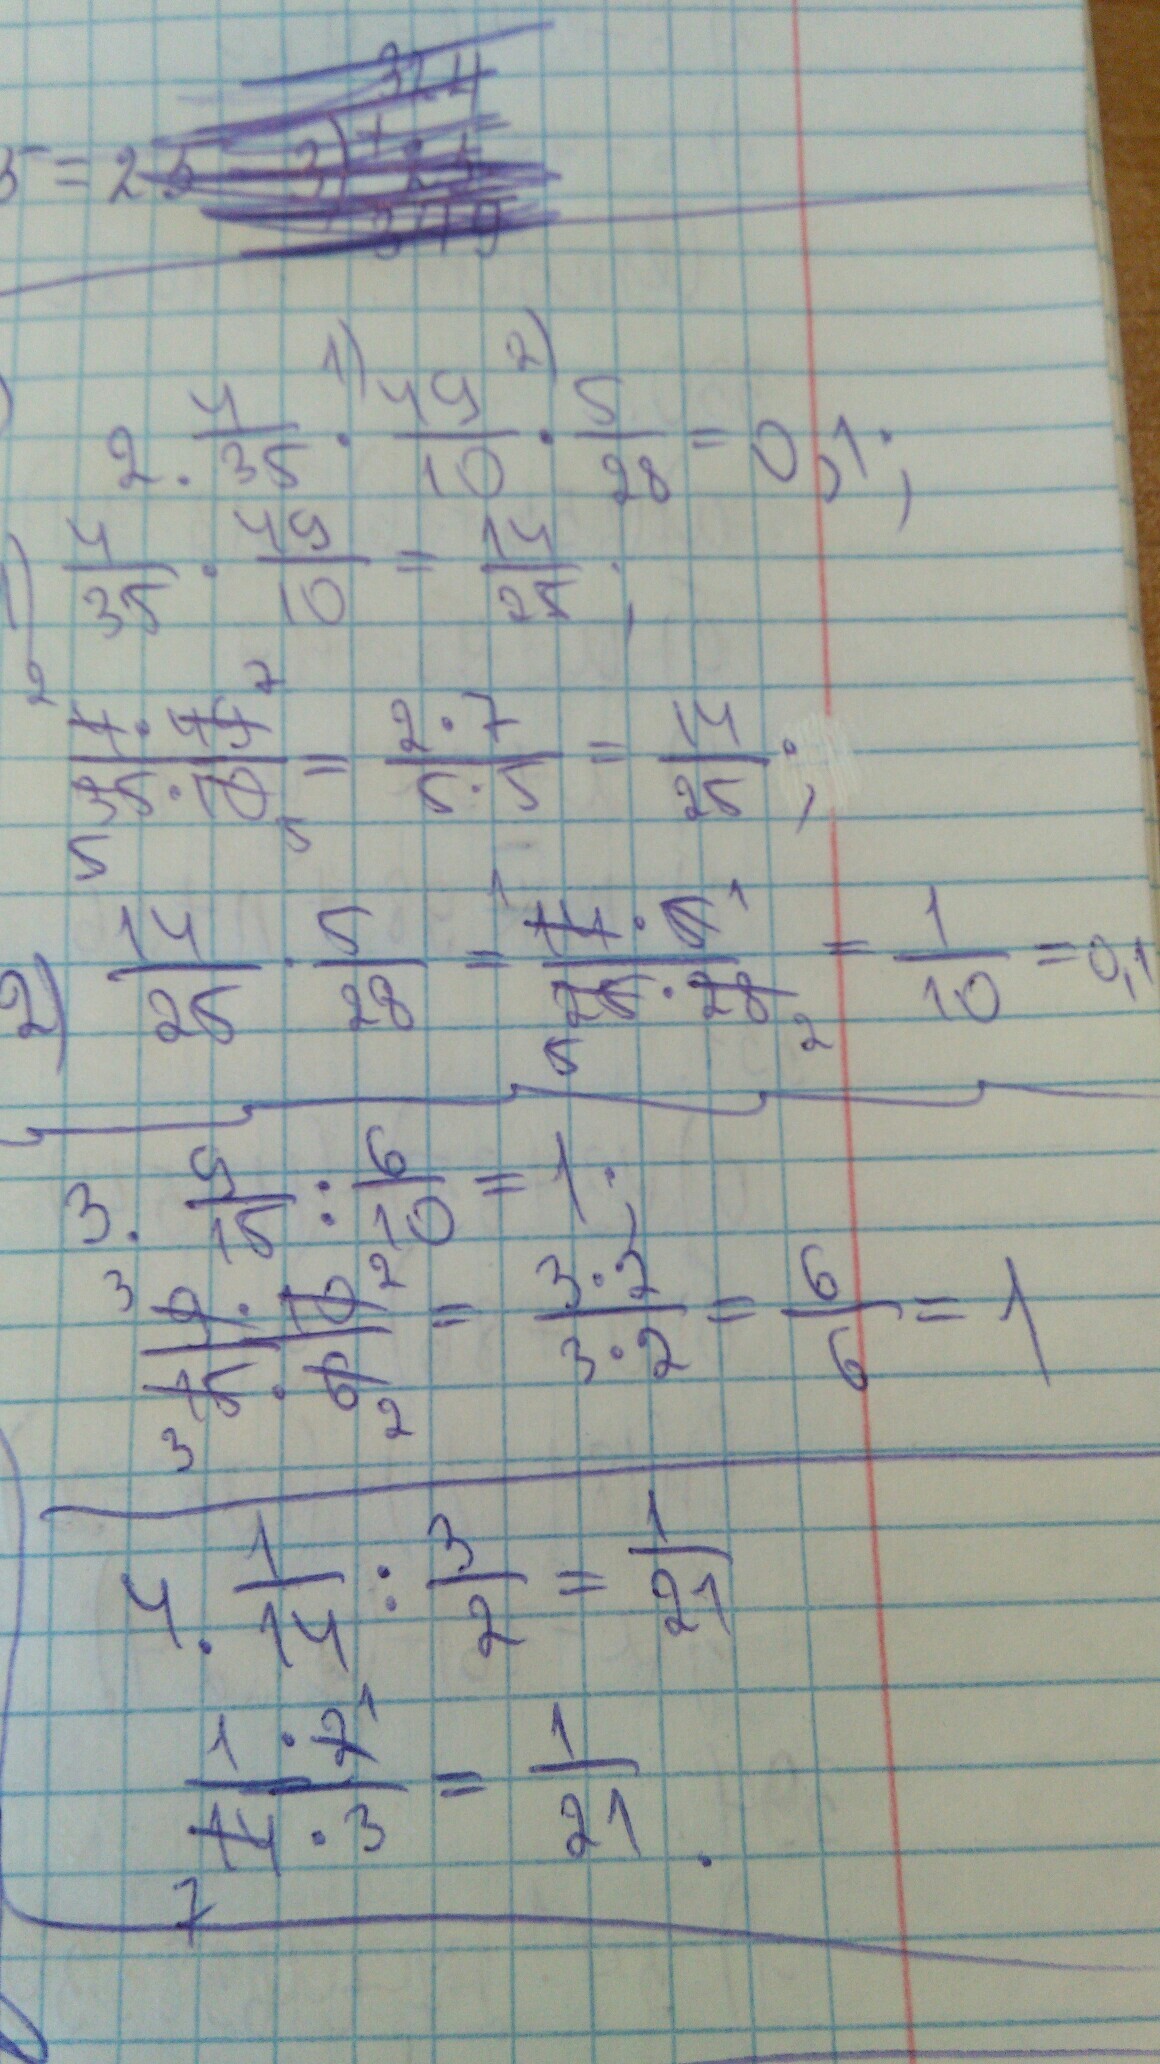 5 = 25
2. 4/35 · 1) 49/10 · 2) 5/28 = 0,1;
1) 4/35 · 49/10 = 14/25;
2 7
4 · 49 / 35 · 10 = 2 · 7 / 5 · 5 = 14/25;
5 5
1 1
2) 14/25 · 5/28 = 14 · 5 / 25 · 28 = 1/10 = 0,1
5 2
3. 9/15 : 6/10 = 1;
3 2
9 · 10 / 15 · 6 = 3 · 2 / 3 · 2 = 6/6 = 1
3 2
4. 1/14 : 3/2 = 1/21
1
1 · 2 / 14 · 3 = 1/21.
7